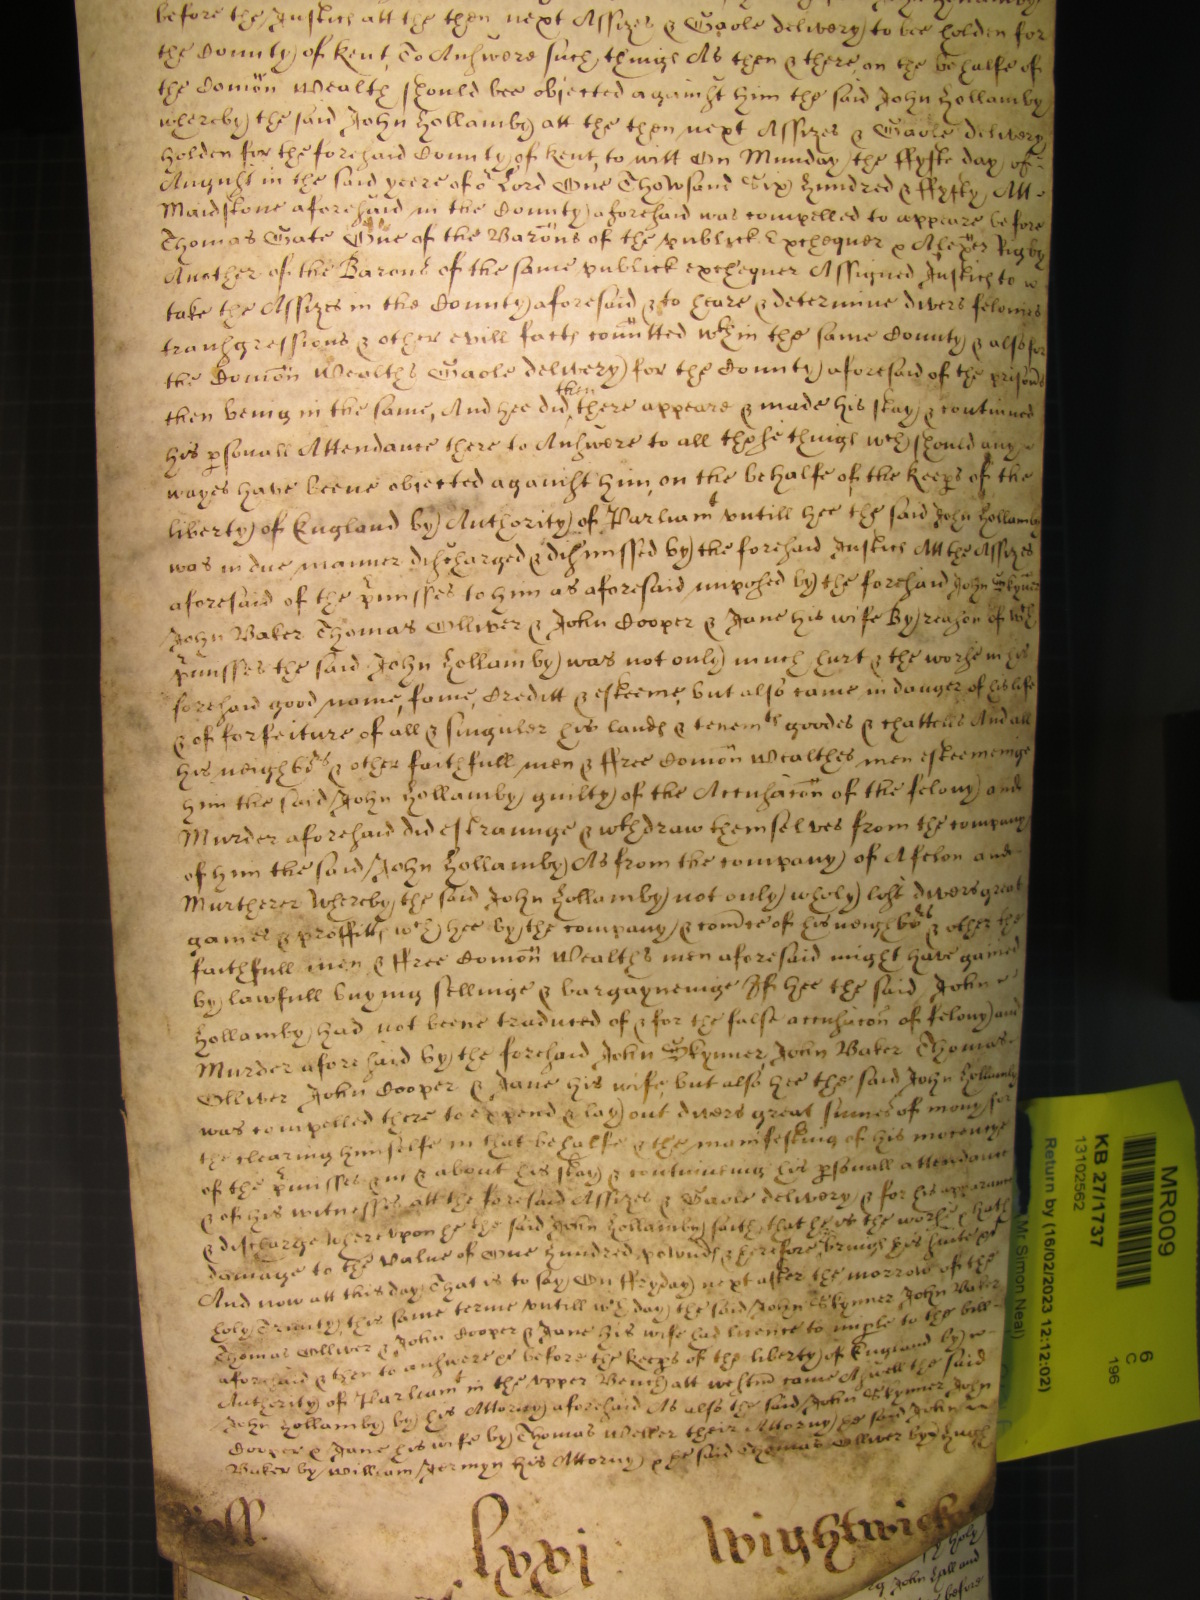 before the Justices att the then next Assizes & Gaole delivery to bee holden for
the County of Kent, To Answere such things As then & there on the behalfe of
the Comon Wealth should bee objected against him the said John Hollamby
whereby the said John Hollamby att the then next Assizes & Gaole delivery
holden for the foresaid County of Kent, to witt On Munday the ffyfte day of
August in the said yeere of or Lord One Thowsand Six Hundred & ffyfty Att
Maidstone aforesaid in the County aforesaid was compelled to appeare before
Thomas Gate One of the Barons of the publick Exchequer & Alexer Rigby
Another of the Barons of the same publick exchequer Assigned Justices to
take the Assizes in the County aforesaid & to heare & determine divers felonies
transgressions & other evill facts comitted wthin the same County & also for
the Comon Wealths Gaole delivery for the County aforesaid of the prisons
then being in the same, And hee did then there appeare & made his stay & continued
his psonall Attendance there to Answere to all those things wch should any
wayes have beene objected against him, on the behalfe of the Keeps of the
liberty of England by Authority of Parliamt untill hee the said John Hollamby
was in due manner discharged & dismissed by the foresaid Justices Att the Assizes
aforesaid of the pmisses to him as aforesaid imposed by the foresaid John Skyner
John Baker Thomas Olliver & John Cooper & Jane his wife By reason of wch
pmisses the said John Hollamby was not only much hurt & the worse in his
foresaid good name, fame, Creditt & esteeme, but also came in danger of his life
& of forfeiture of all & singuler his lands & tenemts goodes & chattells And all
his neighbors & other faithfull men & ffree Comon Wealthes men esteeminge
him the said John Hollamby guilty of the Accusacon of the felony and
Murder aforesaid did estraunge & wthdraw themselves from the company
of him the said John Hollamby As from the company of A felon and
Murtherer Whereby the said John Hollamby not only wholy lost divers great
gaines & proffitts wch hee by the company & comce of his neighbors & other the
faithfull men & ffree Comon Wealths men aforesaid might have gained
by lawfull buying sellinge & bargayneinge If hee the said John
Hollamby had not beene traduced of & for the false accusacon of felony and
Murder aforesaid by the foresaid John Skynner, John Baker Thomas
Olliver John Cooper & Jane his wife, but also hee the said John Hollamby
was compelled there to expend & lay out divers great sumes of mony for
the clearing himselfe in that behalfe & the manifesting of his inocencye
of the pmisses & in & about his stay & continueing his psonall attendance
& of his witnesses att the foresaid Assizes & Gaole delivery & for his apparance
& discharge Whereupon he the said John Hollamby saith that he is the worse & hath
damage to the value of One hundred pownds & therefore brings his suite &c
And now att this day That is to say On ffryday next after the morrow of the
holy Trinity this same terme untill wch day the said John Skynner John Baker
Thomas Olliver & John Cooper & Jane his wife had licence to imple to the bill
aforesaid & then to answere &c before the keeps of the liberty of England by
Authority of Parliamt in the upper Bench att Westm came Aswell the said
John Hollamby by his Attorny aforesaid As also the said John Skynner John
Cooper & Jane his wife by Thomas Weller their Attorny & he said John
Baker by William Jermyn his Attorny & he said Thomas Olliver by Hugh
Roll
lxxi
Wightwicke
MR009
6
C
196
KB 27/1737
13102562
Return by (16/02/2023 12:12:02)
Mr. Simon Neal)
holy
John Hall and
before